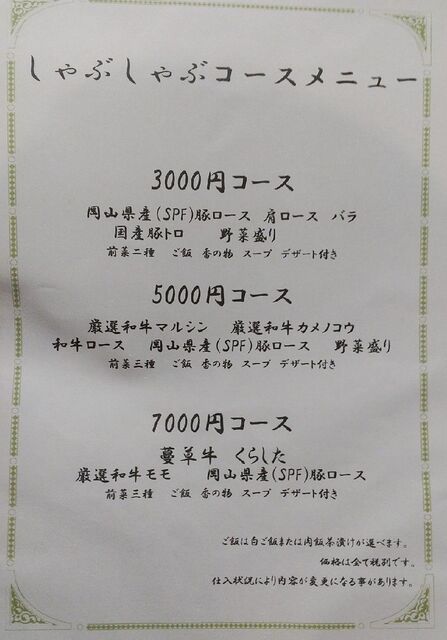 しゃぶしゃぶコースメニュー
3000円コース
岡山県産(SPF)豚ロース 肩ロース バラ
国産豚トロ 野菜盛り
前菜二種 ご飯 香の物 スープ デザート付き
5000円コース
厳選和牛マルシン 厳選和牛カメノコウ
和牛ロース 岡山県産(SPF)豚ロース 野菜盛り
前菜三種 ご飯 香の物 スープ デザート付き
7000円コース
蔓草牛 くらした
厳選和牛モモ 岡山県産(SPF)豚ロース
前菜三種 ご飯 香の物 スープ デザート付き
ご飯は白ご飯または肉飯茶漬けが選べます。
価格は全て税別です。
仕入状況により内容が変更になる事があります。